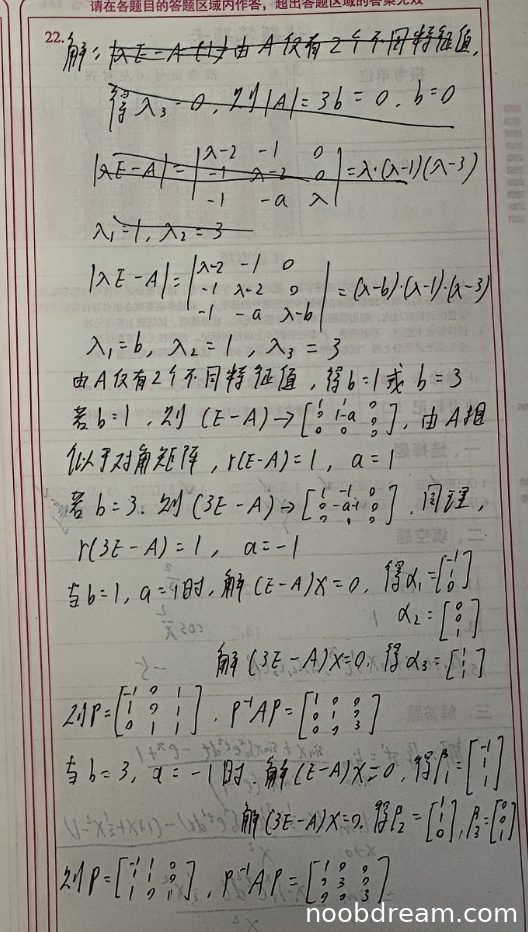 请在各题目的答题区域内作答，超出各题区域的答案无效
22. 解：|λE-A|(1) 由A仅有2个不同特征值，
得 λ₃=0, 则|A|=3b=0. b=0
|λE-A| = |λ-2 -1 0; -1 λ-2 0; -1 -a λ| = λ·(λ-1)(λ-3)
λ₁=1, λ₂=3
|λE-A| = |λ-2 -1 0; -1 λ-2 0; -1 -a λ-b| = (λ-b)·(λ-1)·(λ-3)
λ₁=b, λ₂=1, λ₃=3
由A仅有2个不同特征值, 得b=1或b=3
若b=1, 则 (E-A)→[1 1 0; 0 1-a 0; 0 0 0], 由A相
似于对角矩阵, r(E-A)=1, a=1
若b=3. 则 (3E-A)→[1 -1 0; 0 -a-1 0; 0 0 0]. 同理,
r(3E-A)=1, a=-1
当b=1, a=1时, 解(E-A)X=0, 得α₁=[-1; 1; 0]
α₂=[0; 0; 1]
解(3E-A)X=0, 得α₃=[1; 1; 1]
则P=[-1 0 1; 1 0 1; 0 1 1], P⁻¹AP=[1 0 0; 0 1 0; 0 0 3]
当b=3, a=-1时. 解(E-A)X=0, 得β₁=[-1; 1; 1]
解(3E-A)X=0. 得β₂=[1; 1; 0], β₃=[0; 0; 1]
则P=[-1 1 0; 1 1 0; 1 0 1], P⁻¹AP=[1 0 0; 0 3 0; 0 0 3]
noobdream.com